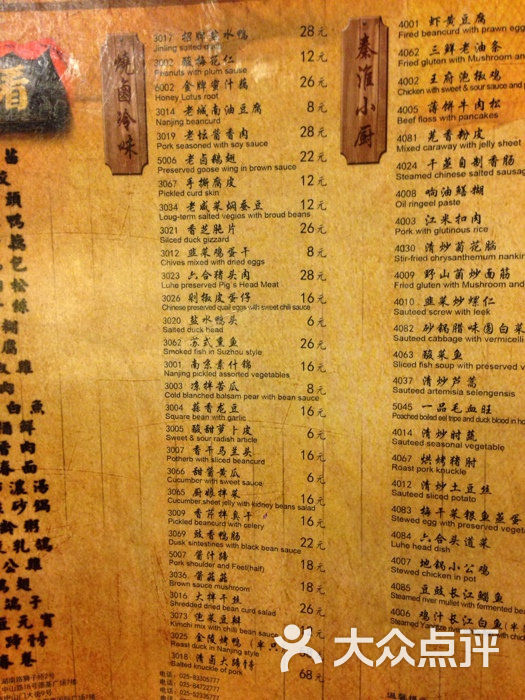 燒鹵冷味
3017 招牌盐水鸭 28元
Jinling salted
3002 酸梅花仁 12元
Peanuts with plum sause
6002 金牌蜜汁藕 26元
Honey Lotus root
3014 老城南油豆腐 8元
Nanjing beancurd
3019 老坛酱香肉 28元
Pork seasoned with soy sauce
5006 老卤鹅翅 22元
Preserved goose wing in brown sauce
3067 手撕腐皮 12元
Pickled curd skin
3034 老咸菜焖蚕豆 12元
Long-term salted vegios with broud beans
3021 香芝肫片 26元
Sliced duck gizzard
3012 韭菜鸡蛋干 8元
Chives mixed with dried eggs
3023 六合猪头肉 28元
Luhe preserved Pig s Head Meat
3026 剁椒皮蛋仔 16元
Chinese preserved quail eggs with sweet chili sauce
3020 盐水鸭头 6元
Salted duck head
3062 苏式熏鱼 26元
Smoked fish in Suzhou style
3001 南京素什锦 16元
Nanjing pickled assorted vegetables
3003 凉拌苦瓜 8元
Cold blanched balsam pear with bean sauce
3004 蒜香龙豆 16元
Square bean with garlic
3005 酸甜萝卜皮 6元
Sweet & sour radish article
3007 香干马兰头 16元
Potherb with sliced beancurd
3066 甜酱黄瓜 6元
Cucumber with sweet sauce
3065 厨娘拌菜
Cucumber,sheet jelly with kidney beans salad
3009 香芹拌臭干 9元
Pickled beancurd with celery
3069 豉香鸭肠 22元
Dusk sintestines with black bean sauce
5007 酱汁蹄 18元
Pork shoulder and Feet(half)
3036 酱菇菇 18元
Brown sauce mushroom
3016 大拌干丝
Shredded dried bean curd salad
3073 泡菜豆瓣
Kimchi mix with chili bean sauce
3025 金陵烤鸭
3018 清卤大蹄髈 68元
knuckle of pork
秦淮小厨
4001 虾黄豆腐
Fired beancurd with prawn egg
4062 三鲜老油条
Fried gluten with Mushroom and
4002 王府泡椒鸡
Chicken with sweet & sour sauce and
4005 薄饼牛肉松
Beef floss with pancakes
4081 芫香粉皮
Mixed caraway with jelly sheet
4024 干蒸自制香肠
Steamed chinese salted sausage
4008 响油鳝糊
Oil ringeel paste
4003 江米扣肉
Pork with glutinous rice
4030 清炒菊花脑
Stir-fried chrysanthemum nankin
4009 野山菌炒面筋
Fried gluten with Mushroom and
4010 韭菜炒螺仁
Sauteed screw with leek
4082 砂锅腊味圆白菜
Sauteed cabbage with vermicelli
4063 酸菜鱼
Sliced fish soup with preserved ve
4037 清炒芦蒿
Sauteed artemisia selengensis
5045 一品毛血旺
Poached boiled eel tripe and duck blood in ho
4014 清炒时蔬
Sauteed seasonal vegetable
4067 烘烤猪肘
Roast pork knuckle
4012 清炒土豆丝
Sauteed sliced potato
4083 梅干菜银鱼蒸蛋
Stewed egg with preserved vegetab
4084 六合头道菜
Luhe head dish
4007 地锅小公鸡
Stewed chicken in pot
4085 豆豉长江鲻鱼
Steamed river mullet with fermented bea
4006 鸡汁长江白鱼
大众点评